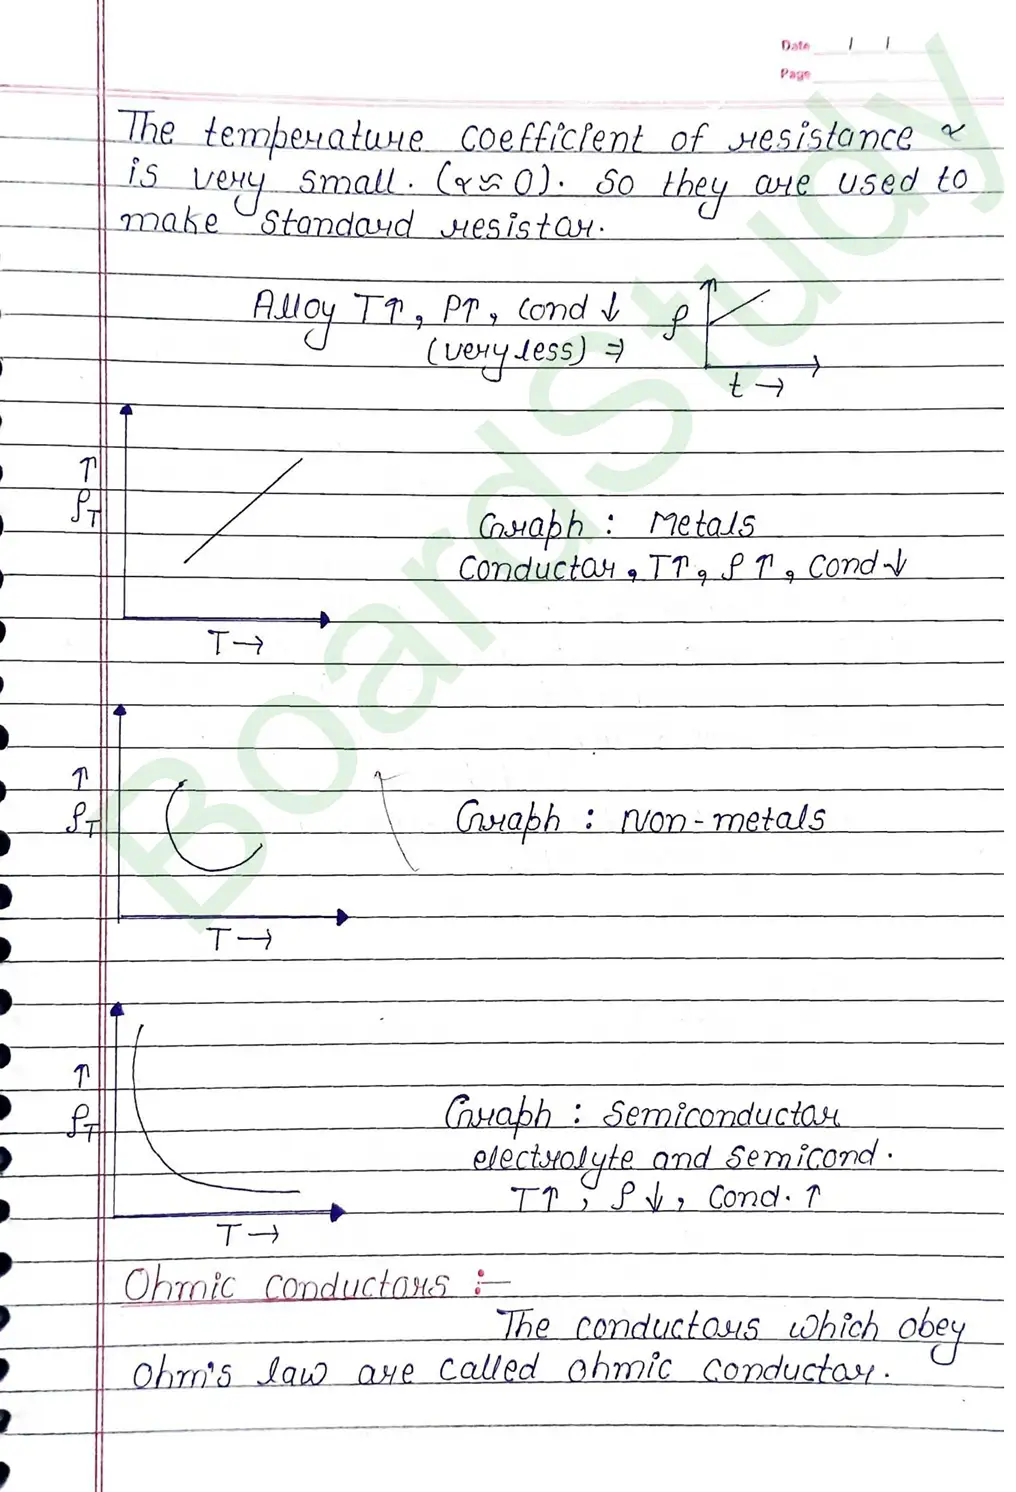 Date / /
Page
The temperature coefficient of resistance α
is very small. (α≈0). So they are used to
make standard resistar.
Alloy T↑, ρ↑, cond ↓
(very less) ⇒
ρ
t →
↑
ρT
T →
Graph : Metals
Conductar, T↑, ρ↑, Cond↓
↑
ρT
T →
Graph : Non-metals
↑
ρT
T →
Graph : Semiconductar
electrolyte and semicond.
T↑, ρ↓, Cond. ↑
Ohmic conductars :-
The conductars which obey
ohm's law are called ohmic conductar.
BoardStudy